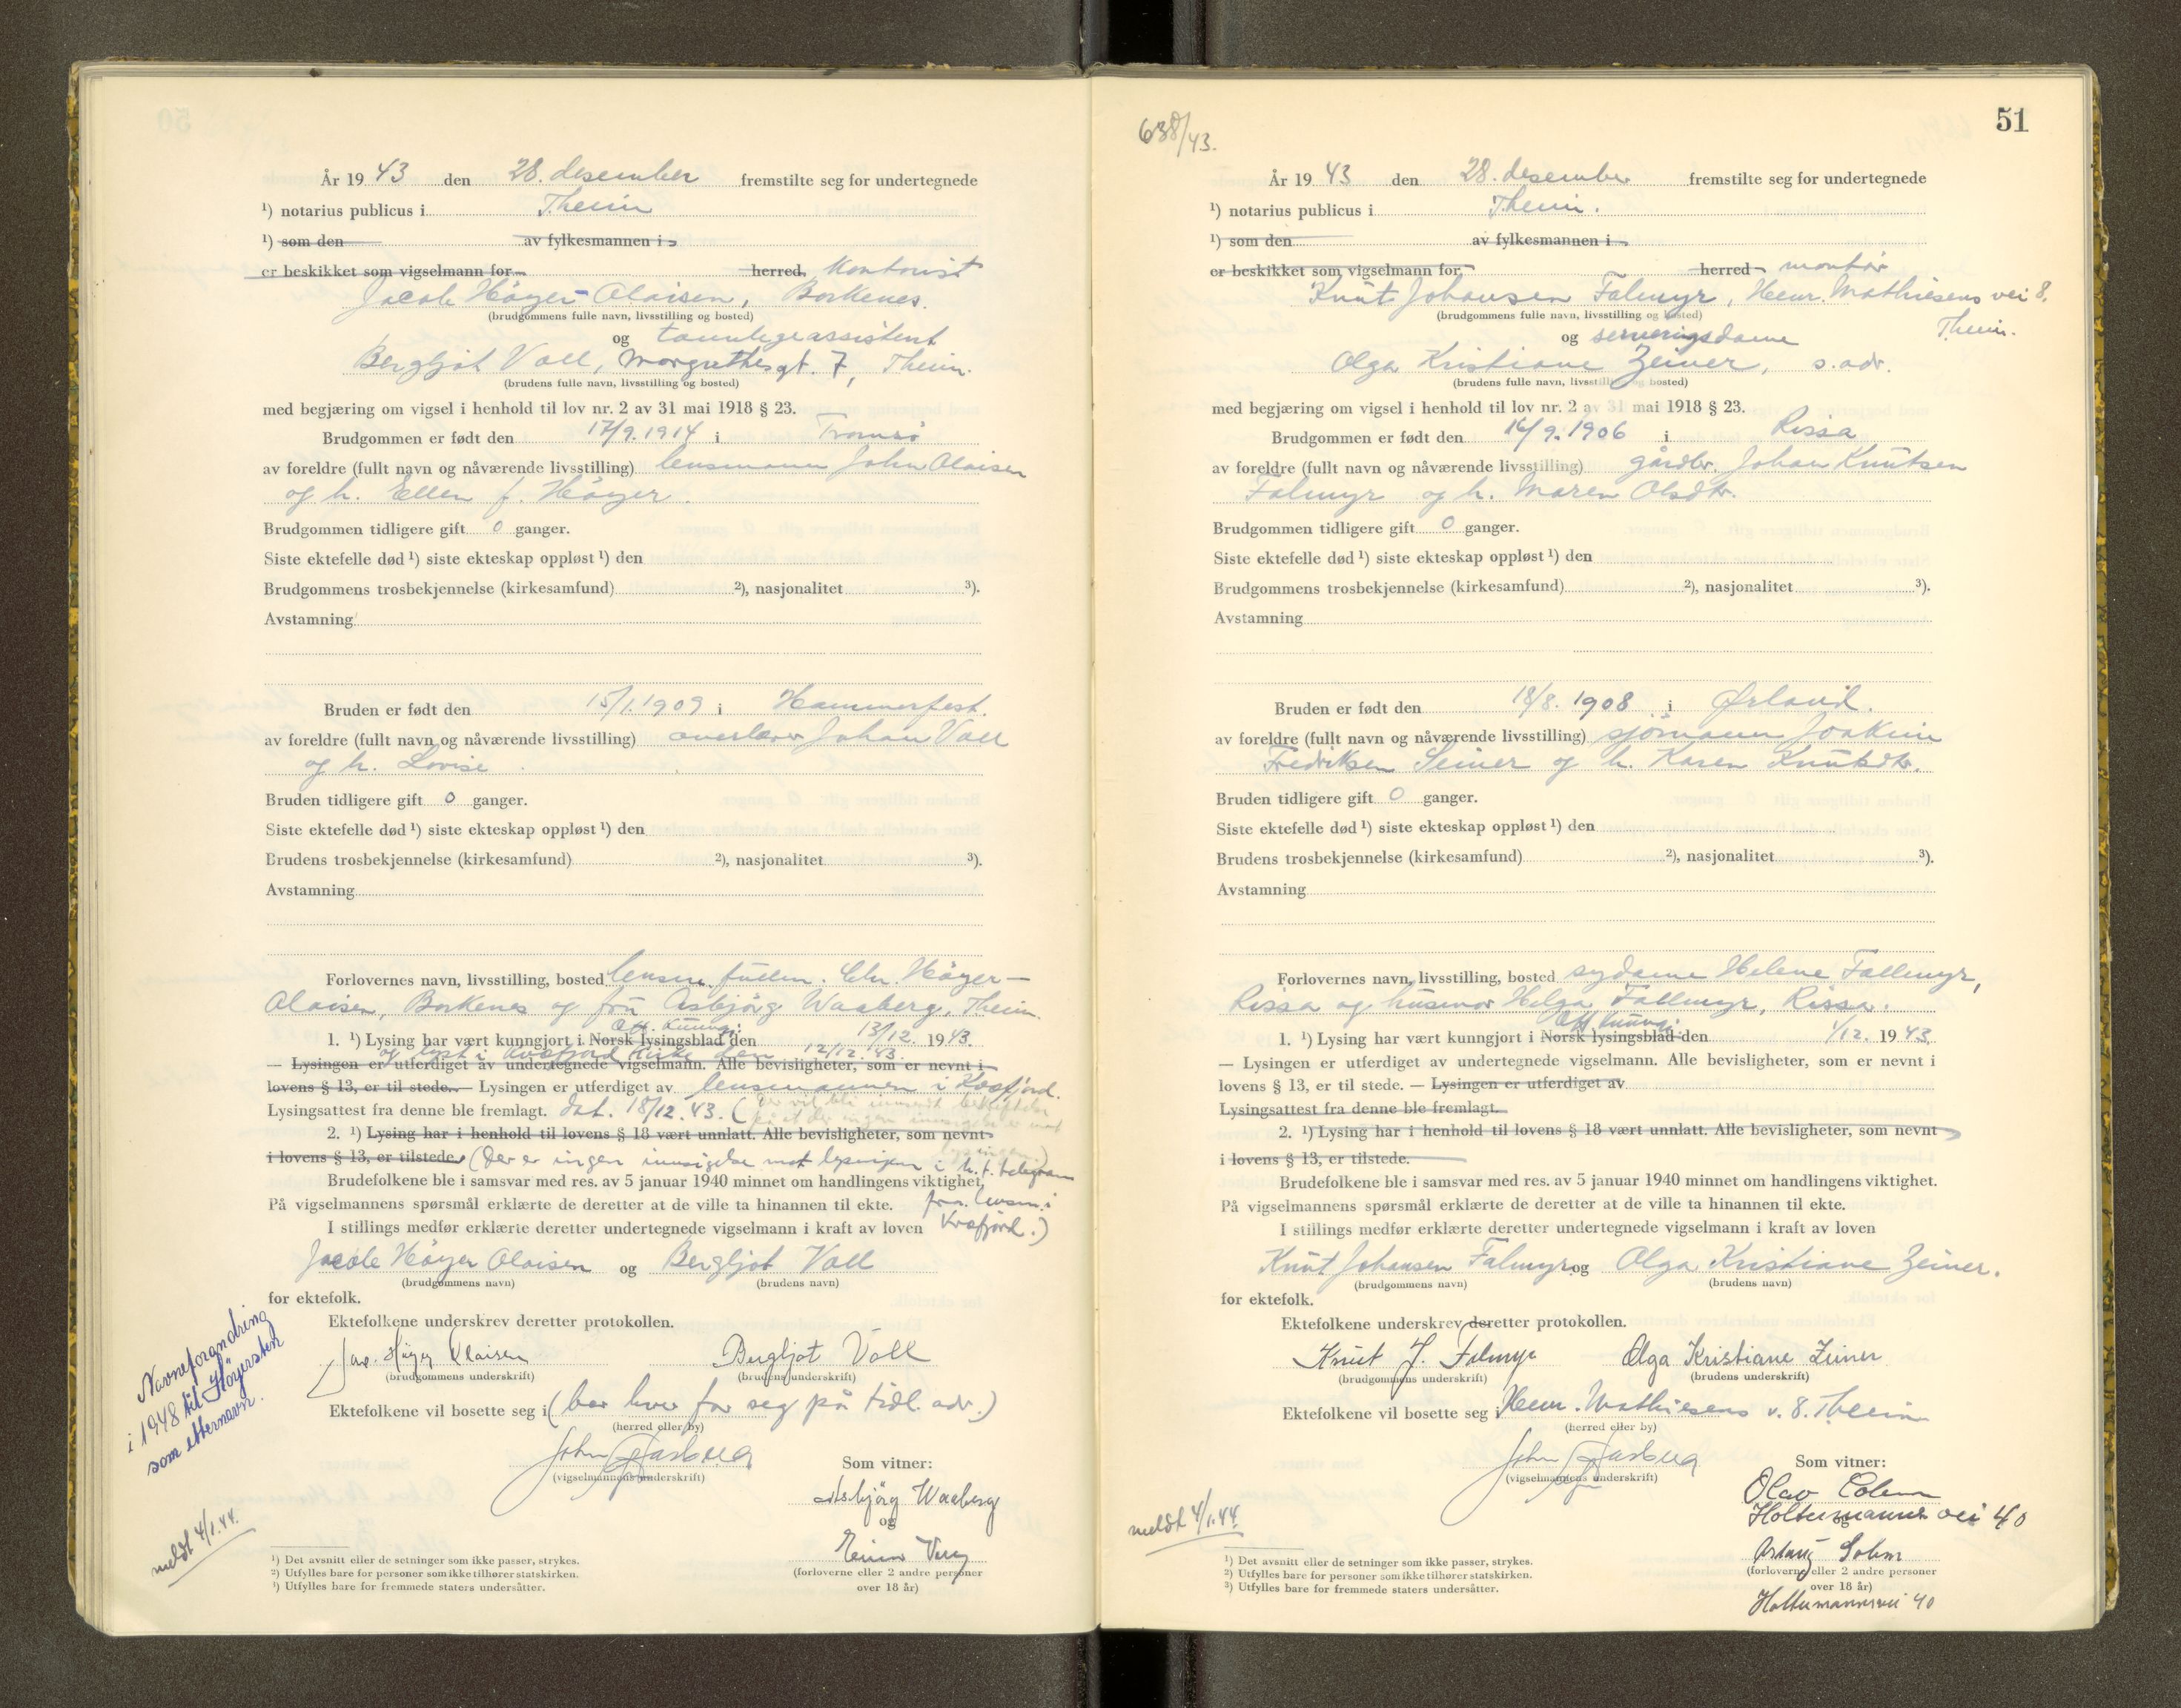 År 19 43 den 28. desember fremstilte seg for undertegnede
1) notarius publicus i Theim
1) som den av fylkesmannen i
er beskikket som vigselmann for herred, Kontorist
Jacob Höyer-Olaisen, Borkenes.
(brudgommens fulle navn, livsstilling og bosted)
og tannlegeassistent
Bergljot Voll, Margrethesgt. 7, Theim.
(brudens fulle navn, livsstilling og bosted)
med begjæring om vigsel i henhold til lov nr. 2 av 31 mai 1918 § 23.
Brudgommen er født den 17/9.1914 i Tromsö
av foreldre (fullt navn og nåværende livsstilling) lensmann John Olaisen
og h. Ellen f. Höyer.
Brudgommen tidligere gift 0 ganger.
Siste ektefelle død 1) siste ekteskap oppløst 1) den
Brudgommens trosbekjennelse (kirkesamfund) 2), nasjonalitet 3).
Avstamning
Bruden er født den 15/1.1909 i Hammerfest.
av foreldre (fullt navn og nåværende livsstilling) overlærer Johan Voll
og h. Lovise
Bruden tidligere gift 0 ganger.
Siste ektefelle død 1) siste ekteskap oppløst 1) den
Brudens trosbekjennelse (kirkesamfund) 2), nasjonalitet 3).
Avstamning
Forlovernes navn, livsstilling, bosted lensm. fullm. Chr. Höyer-
Olaisen, Borkenes og fru Asbjörg Waaberg, Theim.
Off. kunngj.
1. 1) Lysing har vært kunngjort i Norsk lysingsblad den 13/12. 19 43.
og lyst i Kvæfjord kirke den 12/12.43.
— Lysingen er utferdiget av undertegnede vigselmann. Alle bevisligheter, som er nevnt i
lovens § 13, er til stede. — Lysingen er utferdiget av lensmannen i Kvæfjord.
Lysingsattest fra denne ble fremlagt. dat. 18/12.43.
2. 1) Lysing har i henhold til lovens § 18 vært unnlatt. Alle bevisligheter, som nevnt
i lovens § 13, er tilstede. (Der er ingen innsigelse mot lysingen i h.t. telegram
Brudefolkene ble i samsvar med res. av 5 januar 1940 minnet om handlingens viktighet.
På vigselmannens spørsmål erklærte de deretter at de ville ta hinannen til ekte. fra lensm. i
I stillings medfør erklærte deretter undertegnede vigselmann i kraft av loven Kvæfjord.)
Jacob Höyer Olaisen og Bergljot Voll
(brudgommens navn) (brudens navn)
for ektefolk.
Ektefolkene underskrev deretter protokollen.
Jac. Höyer Olaisen Bergljot Voll
(brudgommens underskrift) (brudens underskrift)
Ektefolkene vil bosette seg i (bor hver for seg på tidl. adr.)
(herred eller by)
John
(vigselmannens underskrift)
Som vitner:
Asbjörg Waaberg
og
(forloverne eller 2 andre personer
over 18 år)
Navneforandring
i 1948 til Höyersten
som etternavn.
meldt 4/1.44.
1) Det avsnitt eller de setninger som ikke passer, strykes.
2) Utfylles bare for personer som ikke tilhører statskirken.
3) Utfylles bare for fremmede staters undersåtter.
638/43.
51
År 19 43 den 28. desember fremstilte seg for undertegnede
1) notarius publicus i Theim.
1) som den av fylkesmannen i
er beskikket som vigselmann for herred montör
Knut Johansen Falmyr, Henr. Mathiesens vei 8,
(brudgommens fulle navn, livsstilling og bosted)
Theim.
og serveringsdame
Olga Kristiane Zeiner, s. adr.
(brudens fulle navn, livsstilling og bosted)
med begjæring om vigsel i henhold til lov nr. 2 av 31 mai 1918 § 23.
Brudgommen er født den 16/9.1906 i Rissa
av foreldre (fullt navn og nåværende livsstilling) gårdbr. Johan Knutsen
Falmyr og h. Maren Olsdtr.
Brudgommen tidligere gift 0 ganger.
Siste ektefelle død 1) siste ekteskap oppløst 1) den
Brudgommens trosbekjennelse (kirkesamfund) 2), nasjonalitet 3).
Avstamning
Bruden er født den 18/8. 1908 i Ørland.
av foreldre (fullt navn og nåværende livsstilling) sjömann Joakim
Fredriksen Seiner og h. Karen Knutsdtr.
Bruden tidligere gift 0 ganger.
Siste ektefelle død 1) siste ekteskap oppløst 1) den
Brudens trosbekjennelse (kirkesamfund) 2), nasjonalitet 3).
Avstamning
Forlovernes navn, livsstilling, bosted sydame Helene Fallmyr,
Rissa og husmor Helga Fallmyr, Rissa.
Off. kunngj.
1. 1) Lysing har vært kunngjort i Norsk lysingsblad den 1/12. 19 43
— Lysingen er utferdiget av undertegnede vigselmann. Alle bevisligheter, som er nevnt i
lovens § 13, er til stede. — Lysingen er utferdiget av
Lysingsattest fra denne ble fremlagt.
2. 1) Lysing har i henhold til lovens § 18 vært unnlatt. Alle bevisligheter, som nevnt
i lovens § 13, er tilstede.
Brudefolkene ble i samsvar med res. av 5 januar 1940 minnet om handlingens viktighet.
På vigselmannens spørsmål erklærte de deretter at de ville ta hinannen til ekte.
I stillings medfør erklærte deretter undertegnede vigselmann i kraft av loven
Knut Johansen Falmyr og Olga Kristiane Zeiner.
(brudgommens navn) (brudens navn)
for ektefolk.
Ektefolkene underskrev deretter protokollen.
Knut J. Falmyr Olga Kristiane Zeiner
(brudgommens underskrift) (brudens underskrift)
Ektefolkene vil bosette seg i Henr. Mathiesens v. 8. Theim
(herred eller by)
John
(vigselmannens underskrift)
Som vitner:
Olav
Holtermanns vei 40
og
(forloverne eller 2 andre personer
over 18 år)
Holtermannsvei 40
meldt 4/1.44.
1) Det avsnitt eller de setninger som ikke passer, strykes.
2) Utfylles bare for personer som ikke tilhører statskirken.
3) Utfylles bare for fremmede staters undersåtter.